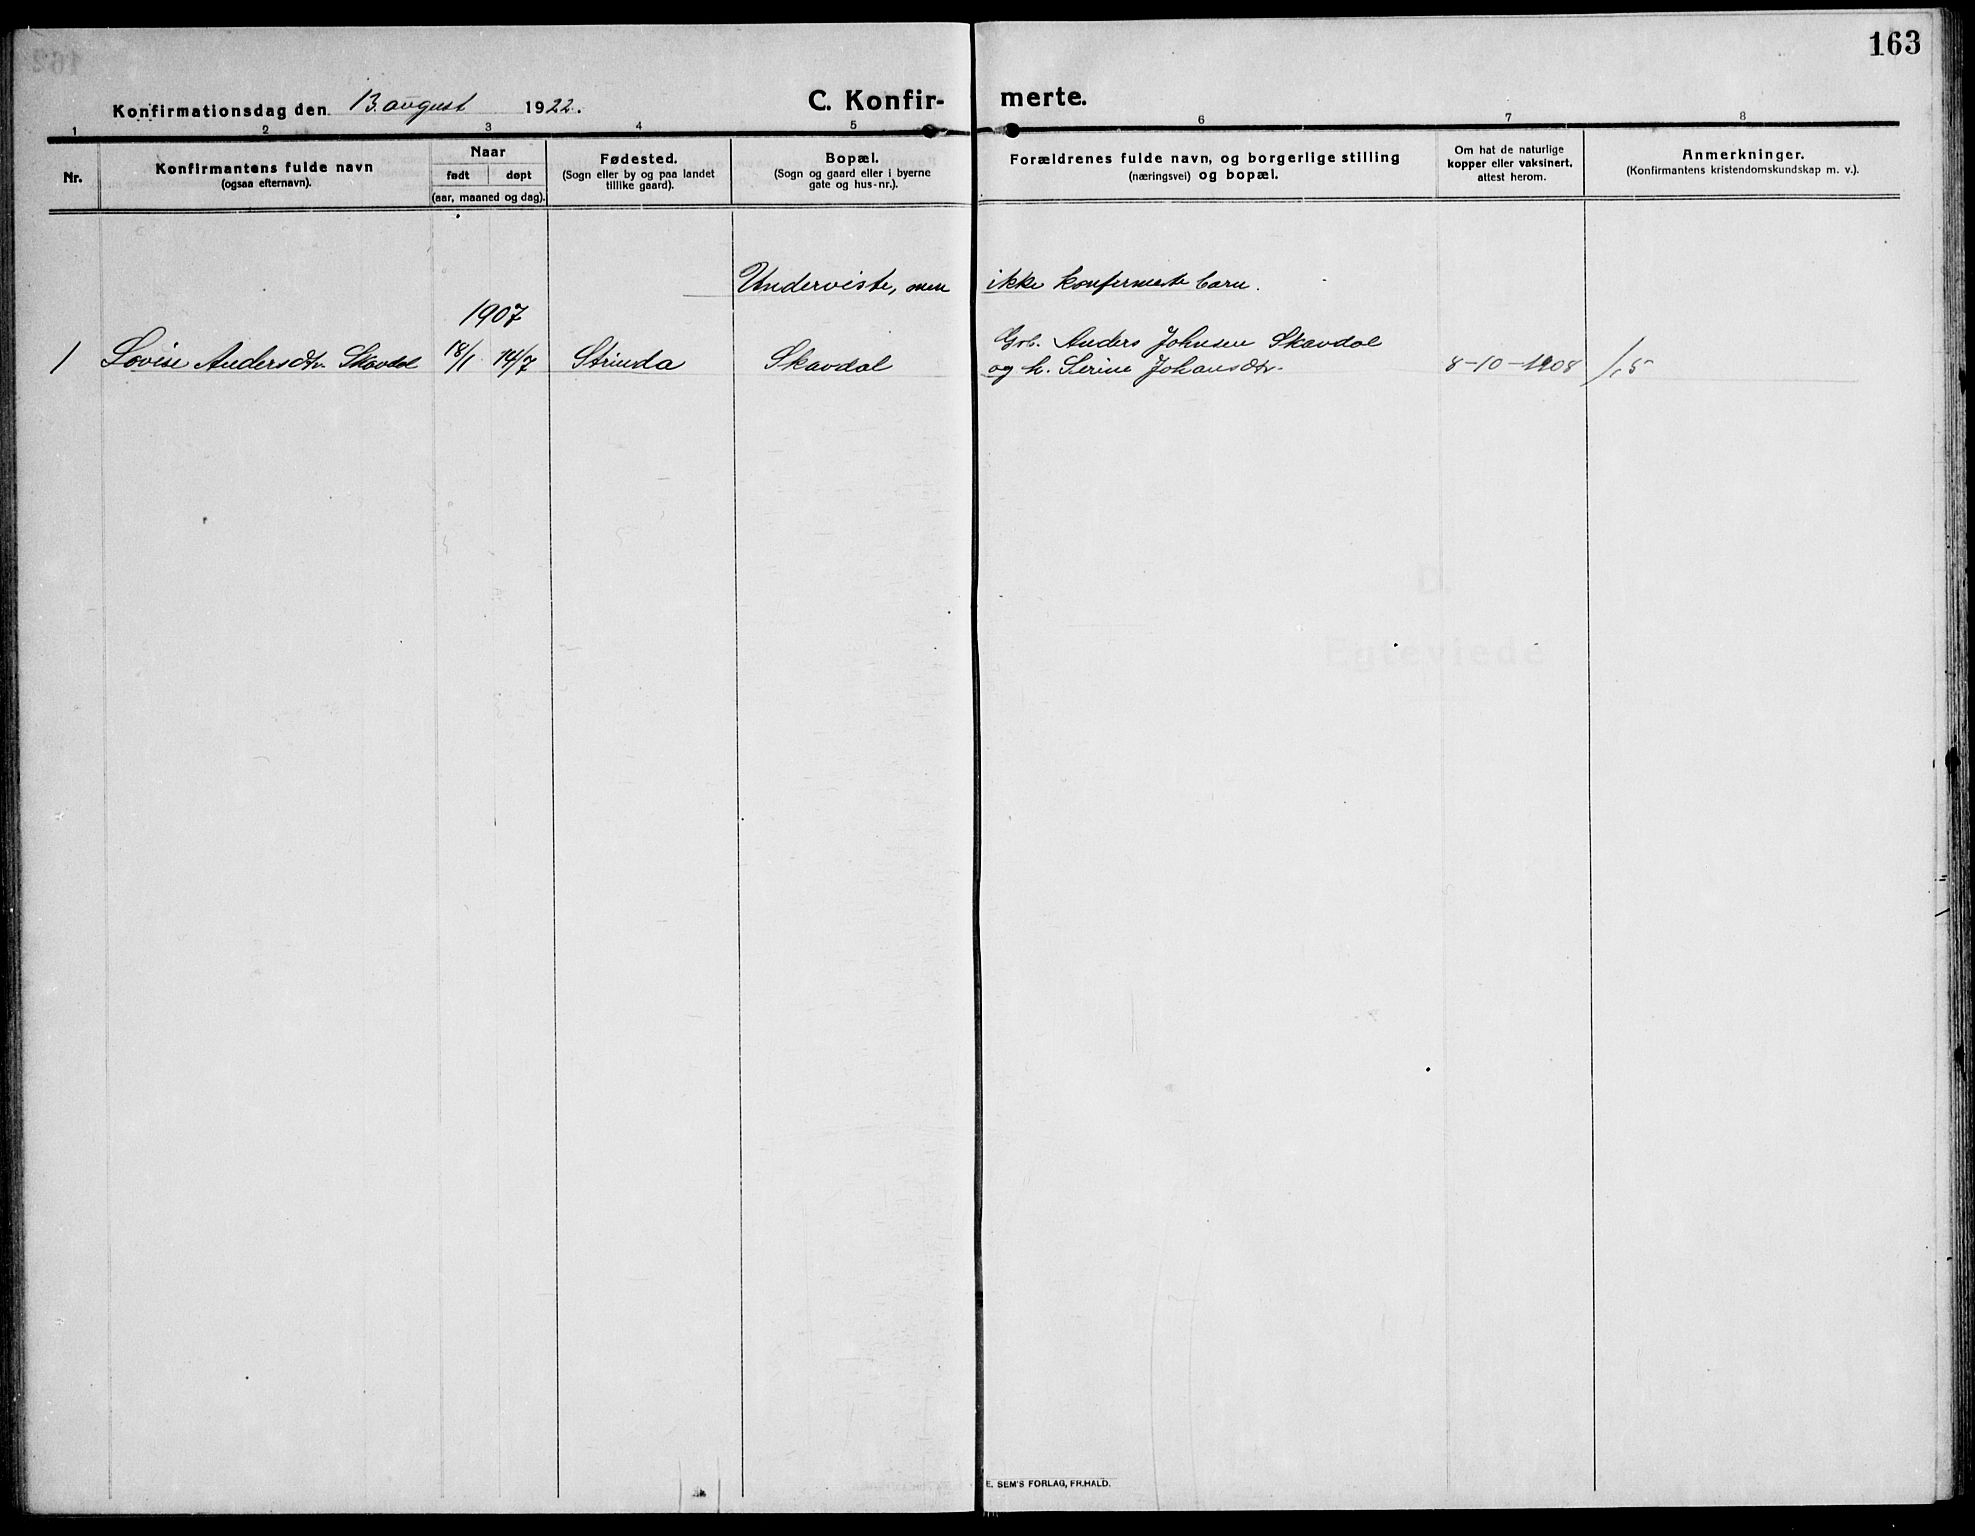 163
Konfirmationsdag den 13. august 1922.
C. Konfir- merte.
1 2 3 4 5 6 7 8
Nr.
Konfirmantens fulde navn
(ogsaa efternavn).
Naar
født døpt
(aar, maaned og dag).
Fødested.
(Sogn eller by og paa landet
tillike gaard).
Bopæl.
(Sogn og gaard eller i byerne
gate og hus-nr.).
Forældrenes fulde navn, og borgerlige stilling
(næringsvei) og bopæl.
Om hat de naturlige
kopper eller vaksinert,
attest herom.
Anmerkninger.
(Konfirmantens kristendomskundskap m. v.).
Underviste, men ikke konfirmerte barn.
1907
Grb. Anders Johnsen Skavdal
1 Lovise Andersdtr. Skavdal 18/1 14/7 Strinda Skavdal og h. Serine Johansdtr. 8-10-1908 1,5
D.
Egteviede
E. SEM'S FORLAG, FR.HALD.